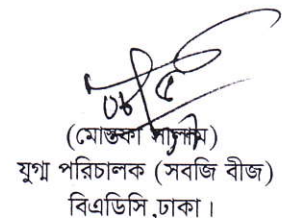 (মোস্তফা সালাম)
যুগ্ম পরিচালক (সবজি বীজ)
বিএডিসি,ঢাকা।